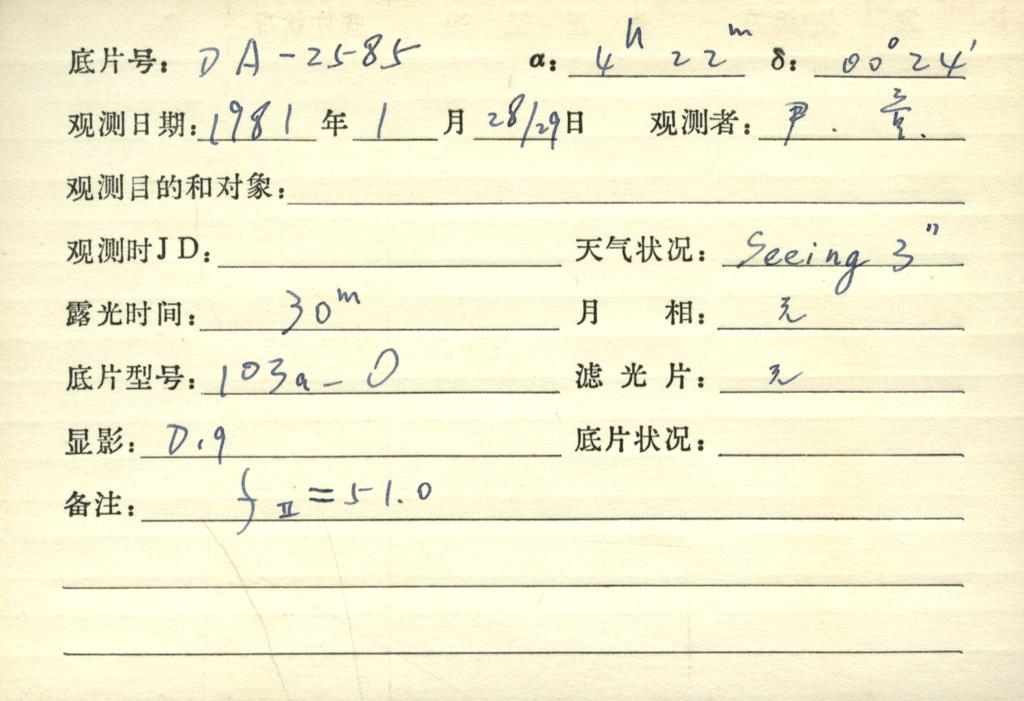 底片号: DA-2585 α: 4h 22m δ: 00°24′
观测日期: 1981 年 1 月 28/29 日 观测者: 尹.
观测目的和对象:
观测时JD: 天气状况: Seeing 3″
露光时间: 30m 月 相: 无
底片型号: 103a-O 滤光片: 无
显影: D.9 底片状况:
备注: f II = 51.0